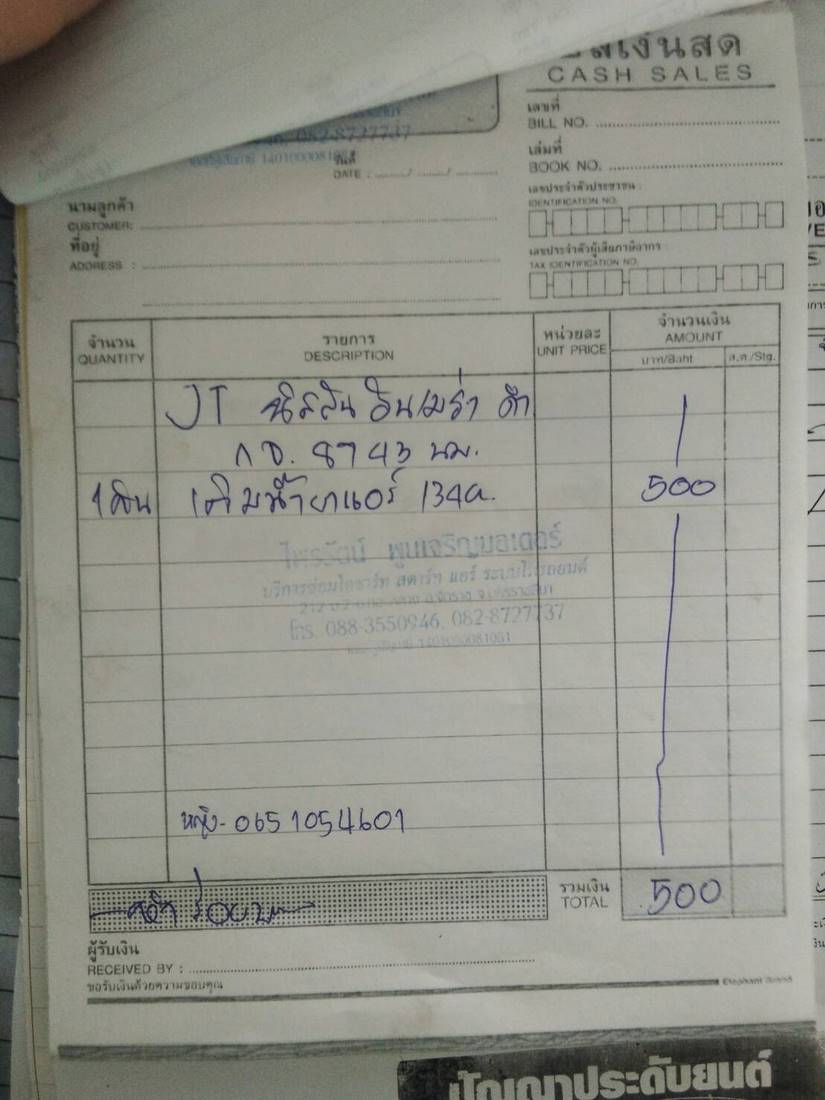 เงินสด
CASH SALES
เลขที่
BILL NO.
เล่มที่
BOOK NO.
082-8727737
วันที่
DATE :
เลขประจำตัวประชาชน :
IDENTIFICATION NO.
นามลูกค้า
CUSTOMER:
ที่อยู่
ADDRESS :
เลขประจำตัวผู้เสียภาษีอากร :
TAX IDENTIFICATION NO.
จำนวน รายการ หน่วยละ จำนวนเงิน
QUANTITY DESCRIPTION UNIT PRICE AMOUNT
บาท/Baht ส.ต./Stg.
JT นิสสัน
8743 นม.
1 เติมน้ำยาแอร์ 134a. 500
ไพรรัตน์ พูนเจริญมอเตอร์
บริการซ่อมไดชาร์ท สตาร์ท แอร์ ระบบไฟรถยนต์
โทร. 088-3550946, 082-8727737
หญิง- 0651054601
รวมเงิน
TOTAL 500
ผู้รับเงิน
RECEIVED BY :
ขอรับเงินด้วยความขอบคุณ
Elephant Brand
ปัญญาประดับยนต์